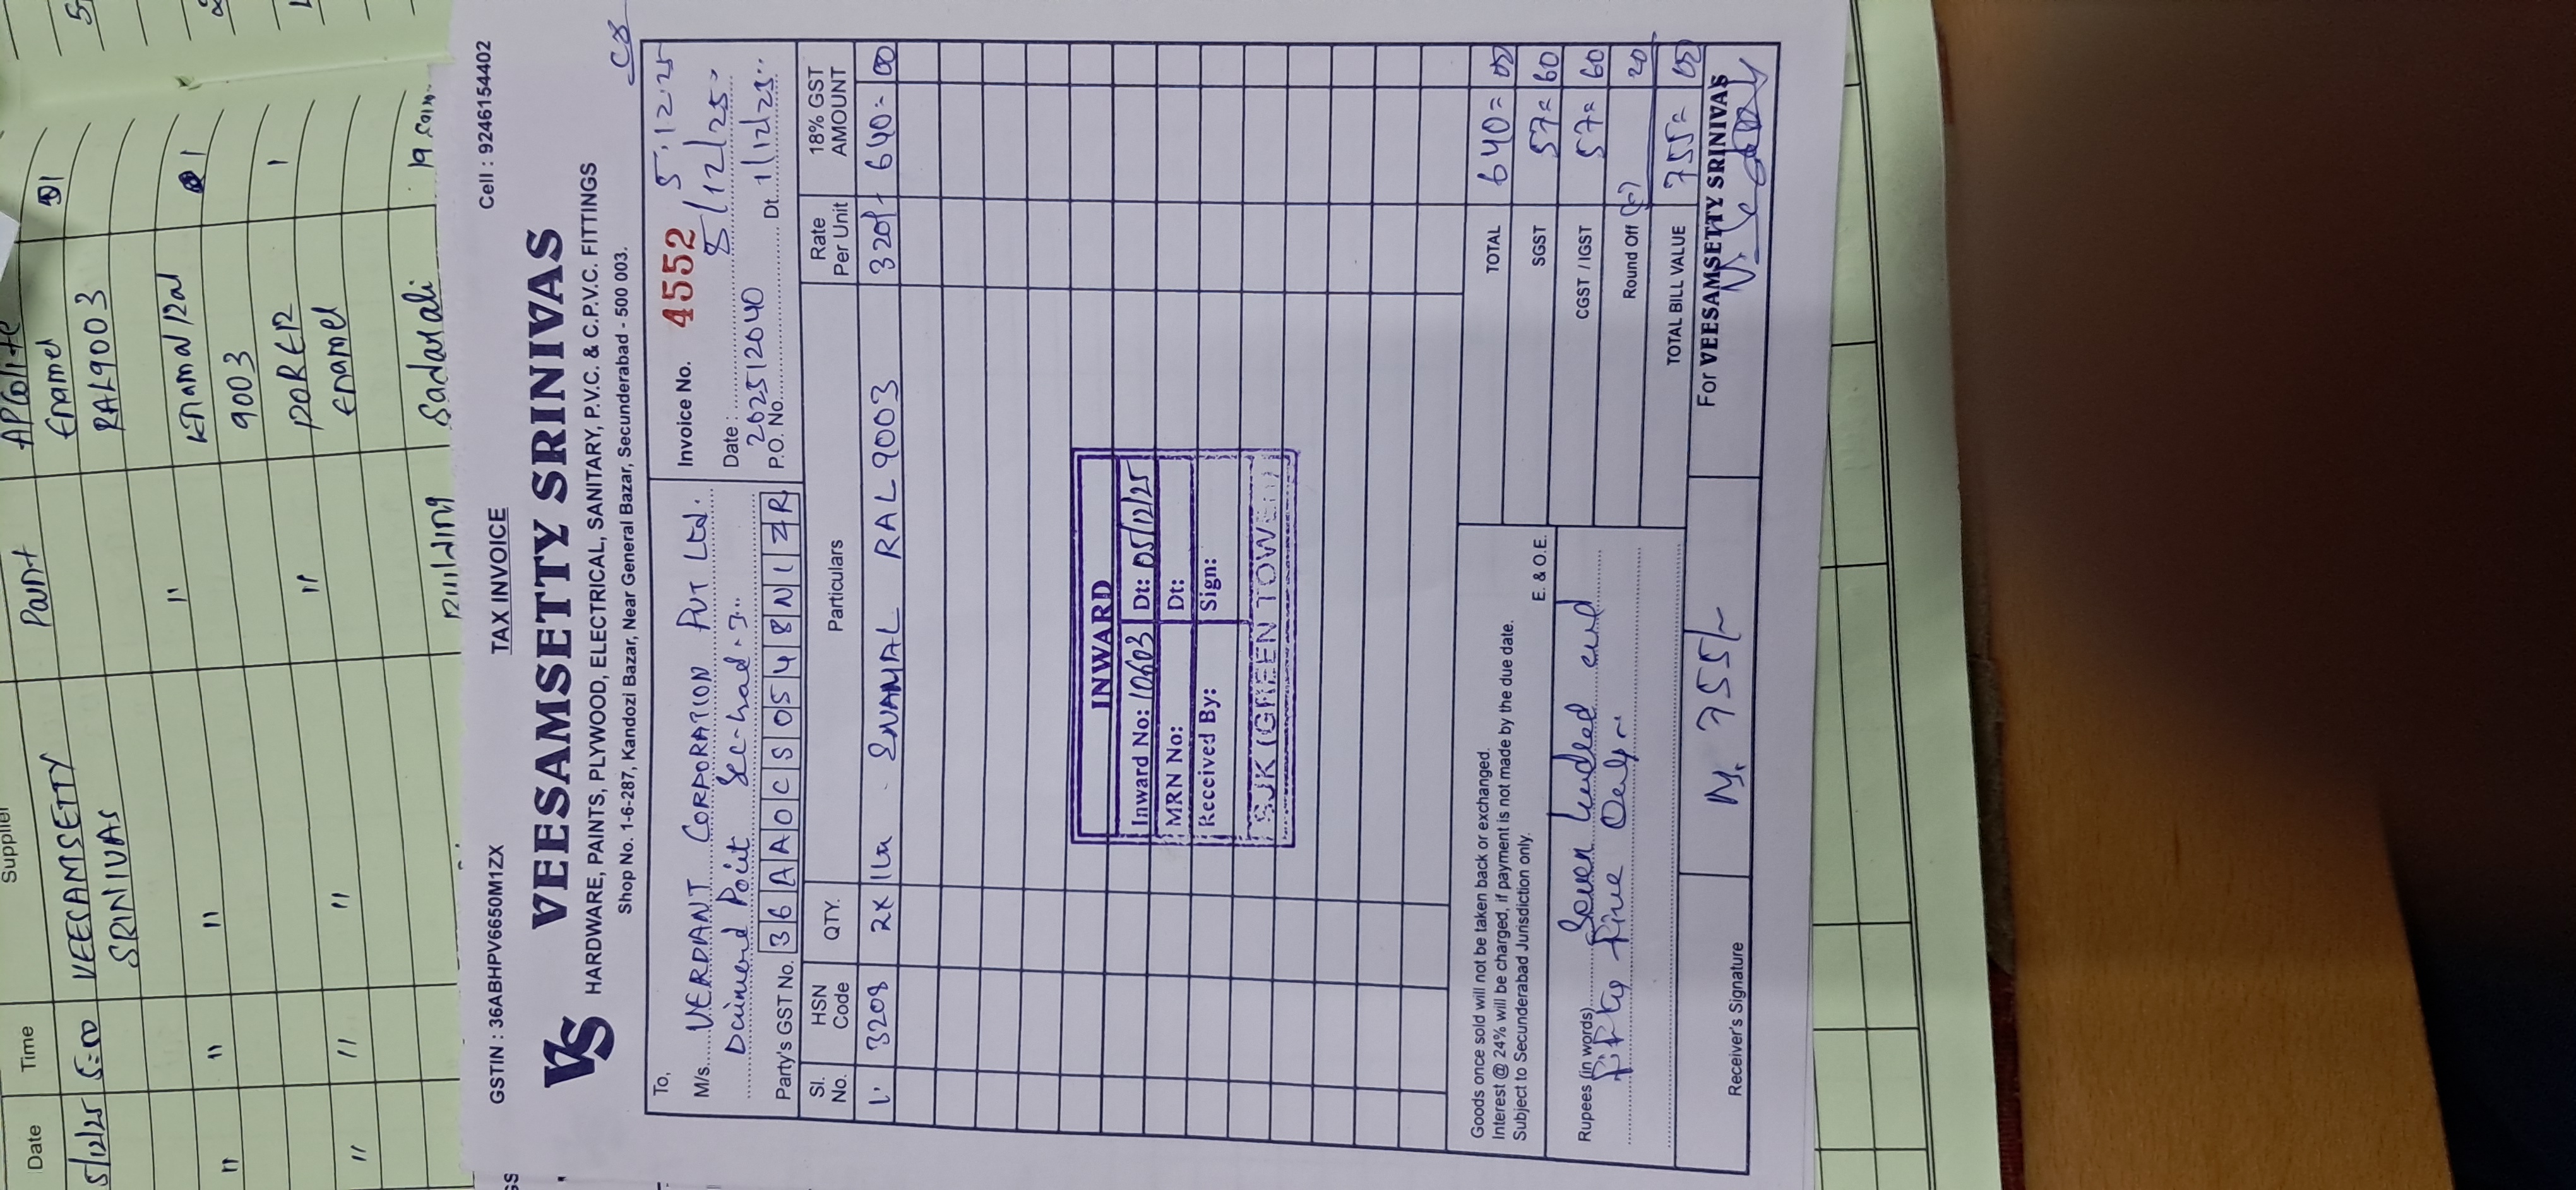 Supplier
Date Time
Paint
Enamel
RAL9003
5/12/25 5:00 VEESAMSETTY
SRINIVAS
" " " "
9003
" " " "
enamel
Building
Sadarali
GSTIN : 36ABHPV6650M1ZX TAX INVOICE Cell : 9246154402
VS VEESAMSETTY SRINIVAS
HARDWARE, PAINTS, PLYWOOD, ELECTRICAL, SANITARY, P.V.C. & C.P.V.C. FITTINGS
Shop No. 1-6-287, Kandozi Bazar, Near General Bazar, Secunderabad - 500 003.
To,
M/s. VERDANT CORPORATION PVT Ltd.
Invoice No. 4552 5.12.25
Date : 5/12/25
P.O. No. 202512040 Dt. 1/12/25
Party's GST No. 36AAOCS0548N1ZR
Sl. No. HSN Code QTY. Particulars Rate Per Unit 18% GST AMOUNT
1. 3208 2x 1ltr ENAMAL RAL 9003 320/- 640= 00
INWARD
Inward No: 10603 Dt: 05/12/25
MRN No: Dt:
Received By: Sign:
SJK (GREEN TOWERS)
Goods once sold will not be taken back or exchanged.
Interest @ 24% will be charged, if payment is not made by the due date.
Subject to Secunderabad Jurisdiction only.
E. & O.E.
TOTAL 640= 00
SGST 57= 60
CGST / IGST 57= 60
Round Off (-) 20
TOTAL BILL VALUE 755= 00
Rupees (in words) Seven hundred and
Fifty Five Only
755/-
Receiver's Signature
For VEESAMSETTY SRINIVAS